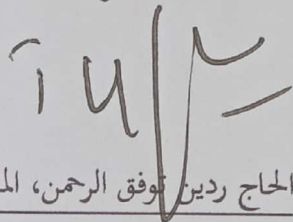 الحاج ردين توفق الرحمن، الم